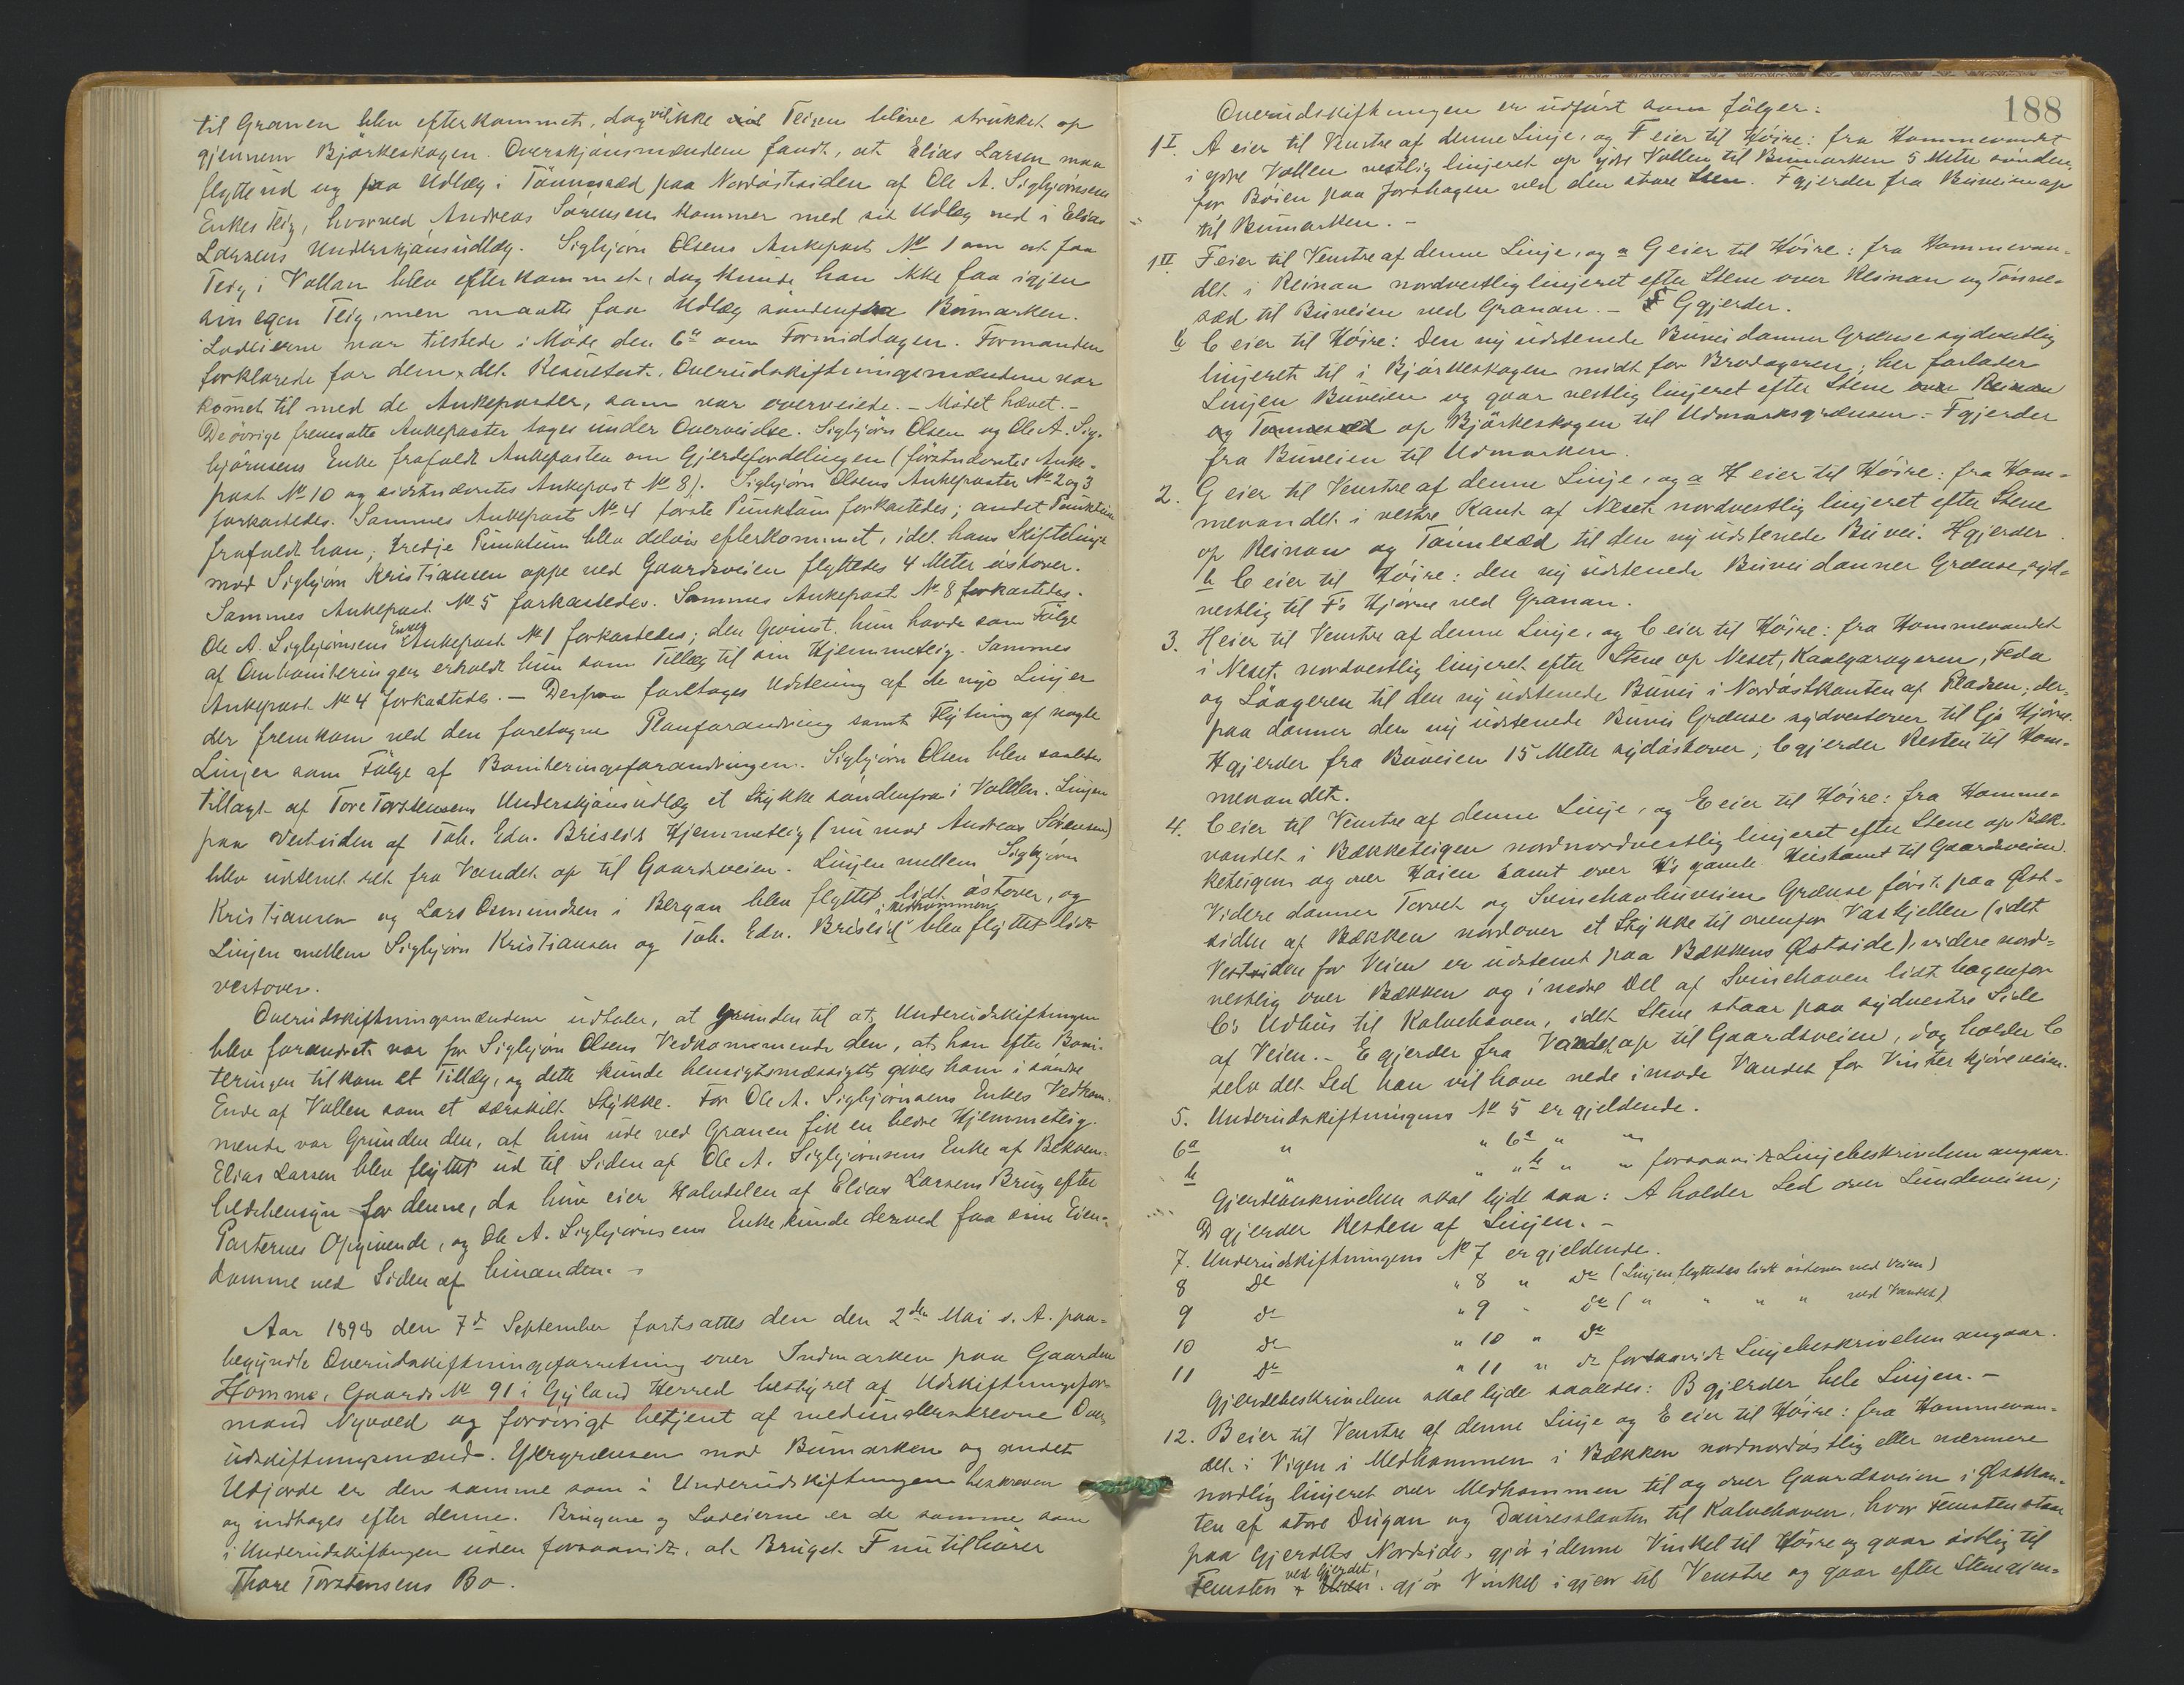 til Granen blev efterkommet, dog vil ikke Teigen blive strukket op
gjennem Bjørkeskogen. Overskjønsmændene fandt, at Elias Larsen maa
flytte ud og faa Udlæg i Tønnesæd paa Nordøstsiden af Ole A. Sigbjørnsens
Enkes Teig, hvorved Andreas Sørensens kommer med sit Udlæg ned i Elias
Larsens Underskjønsudlæg. Sigbjørn Olsens Ankepost No 1 om at faa
Teig i Vollan blev efterkommet, dog kunde han ikke faa igjen
sin egen Teig, men maatte faa Udlæg søndenfra Bumarken.
Lodeierne var tilstede i Møde den 6te om Formiddagen. Formanden
forklarede for dem det Resultat, Overudskiftningsmændene var
komet til med de Ankeposter, som var overveiede. - Mødet hævet. -
De øvrige fremsatte Ankeposter toges under Overveielse. Sigbjørn Olsen og Ole A. Sig-
bjørnsens Enke frafaldt Ankeposten om Gjerdefordelingen (førstnævntes Anke-
post No 10 og sidstnævntes Ankepost No 8). Sigbjørn Olsens Ankeposter No 2 og 3
forkastedes. Sammes Ankepost No 4 første Punktum forkastedes; andet Punktum
frafaldt han; tredje Punktum blev delvis efterkommet, idet hans Skiftelinje
mod Sigbjørn Kristiansen oppe ved Gaardsveien flyttedes 4 Meter østover.
Sammes Ankepost No 5 forkastedes. Sammes Ankepost No 8 forkastedes.
Ole A. Sigbjørnsens Enkes Ankepost No 1 forkastedes; den Gevinst hun havde som Følge
af Omboniteringen erholdt hun som Tillæg til sin Hjemmeteig. Sammes
Ankepost No 4 forkastedes. - Derpaa foretoges Udstening af de nye Linjer
der fremkom ved den foretagne Planforandring samt Flytning af nogle
Linjer som Følge af Boniteringsforandringen. Sigbjørn Olsen blev saaledes
tillagt af Tore Torstensens Underskjønsudlæg et Stykke søndenfra i Vollen. Linjen
paa Vestsiden af Tob. Edv. Briseids Hjemmeteig (nu mod Andreas Sørensen)
blev udstenet ret fra Vandet op til Gaardsveien. Linjen mellem Sigbjørn
Kristiansen og Lars Osmundsen i Bergan blev flyttet lidt østover, og
Linjen mellem Sigbjørn Kristiansen og Tob. Edv. Briseid i Medhommen blev flyttet lidt
vestover.
Overudskiftningsmændene udtaler, at Grunden til at Underudskiftningen
blev forandret var for Sigbjørn Olsens Vedkommende den, at han efter Boni-
teringen tilkom et Tillæg, og dette kunde hensigtsmæssigst gives ham i søndre
Ende af Vollen som et særskilt Stykke. For Ole A. Sigbjørnsens Enkes Vedkom-
mende var Grunden den, at hun ude ved Granen fik en bedre Hjemmeteig.
Elias Larsen blev flyttet ud til Siden af Ole A. Sigbjørnsens Enke af Bekvem-
heldshensyn for denne, da hun eier Halvdelen af Elias Larsens Brug efter
Parternes Opgivende, og Ole A. Sigbjørnsens Enke kunde derved faa sine Eien-
domme ved Siden af hinanden. -
Aar 1898 den 7de September fortsattes den den 2den Mai s. A. paa-
begyndte Overudskiftningsforretning over Indmarken paa Gaarden
Homme, Gaards No 91 i Gyland Herred bestyret af Udskiftningsfor-
mand Nyvold og forøvrigt betjent af medunderskrevne Over-
udskiftningsmænd. Ydergrænsen mod Bumarken og andet
Udjorde er den samme som i Underudskiftningen beskreven
og indtages efter denne. Brugene og Lodeierne er de samme som
i Underudskiftningen uden forsaavidt, at Bruget F nu tilhører
Thore Torstensens Bo.
188
Overudskiftningen er udført som følger:
1I. A eier til Venstre af denne Linje, og F eier til Høire: fra Hommevandet
i ydre Vollen vestlig linjeret op ydre Vollen til Bumarken 5 Meter sønden-
for Bøien paa Jorshagen ved den store Sten. F gjerder fra Buveien op
til Bumarken. -
1II. F eier til Venstre af denne Linje, og a G eier til Høire: fra Hommevan-
det i Reinan nordvestlig linjeret efter Stene over Reinan og Tønne-
sæd til Buveien ved Granan. - G gjerder.
b C eier til Høire: Den ny udstenede Buvei danner Grænse sydvestlig
linjeret til i Bjørkeskogen midt for Brodageren; her forlader
Linjen Buveien og gaar vestlig linjeret efter Stene over Reinan
og Tønnesæd op Bjørkeskogen til Udmarksgrænsen. - F gjerder
fra Buveien til Udmarken.
2. G eier til Venstre af denne Linje, og a H eier til Høire: fra Hom-
mevandet i vestre Kant af Neset nordvestlig linjeret efter Stene
op Reinan og Tønnesæd til den ny udstenede Buvei. H gjerder.
b C eier til Høire: den ny udstenede Buvei danner Grænse, syd-
vestlig til F's Hjørne ved Granan.
3. H eier til Venstre af denne Linje, og C eier til Høire: fra Hommevandet
i Neset, nordvestlig linjeret efter Stene op Neset, Kaalgarageren, Feda
og Løageren til den ny udstenede Buvei i Nordøstkanten af Pladsen; der-
paa danner den ny udstenede Buvei Grænse sydvestover til G's Hjørne.
H gjerder fra Buveien 15 Meter sydøstover; C gjerder Resten til Hom-
mevandet.
4. C eier til Venstre af denne Linje, og E eier til Høire: fra Homme-
vandet i Bækketeigen nordnordvestlig linjeret efter Stene op Bæk-
keteigen og over Haien samt over H's gamle Hustomt til Gaardsveien.
Videre danner Torvet og Svinehavbuveien Grænse først paa Øst-
siden af Bækken nordover et Stykke til ovenfor Vaskjellen (idet
Vestsiden for Veien er udstenet paa Bækkens Østside), videre nord-
vestlig over Bækken og i nedre Del af Svinehaven lidt bagenfor
C's Udhus til Kalvehaven, idet Stene staar paa sydvestre Side
af Veien. - E gjerder fra Vandet op til Gaardsveien, dog holder C
selv det Led han vil have nede imode Vandet for Vinterkjøreveien.
5. Underudskiftningens No 5 er gjeldende.
6a " " 6a " "
b " " " b " " forsaavidt Linjebeskrivelsen angaar.
Gjerdebeskrivelsen skal lyde saa: A holder Led over Lundeveien;
D gjerder Resten af Linjen. -
7. Underudskiftningens No 7 er gjeldende.
8 do " 8 " do (Linjen flyttedes lidt østover ved Veien)
9 do " 9 " do ( " " " " ved Vandet)
10 do " 10 " do
11 do " 11 " do forsaavidt Linjebeskrivelsen angaar.
Gjerdebeskrivelsen skal lyde saaledes: B gjerder hele Linjen. -
12. B eier til Venstre af denne Linje og E eier til Høire: fra Hommevan-
det i Vigen i Medhommen i Bækken nordnordøstlig eller nærmere
nordlig linjeret over Medhommen til og over Gaardsveien i Østkan-
ten af store Dugan og Dauresslanten til Kalvehaven, hvor Femsten staar
paa Gjerdets Nordside, gjør i denne Vinkel til Høire og gaar østlig til
Femsten ved Gjerdet, gjør Vinkel igjen til Venstre og gaar efter Stene gjen-